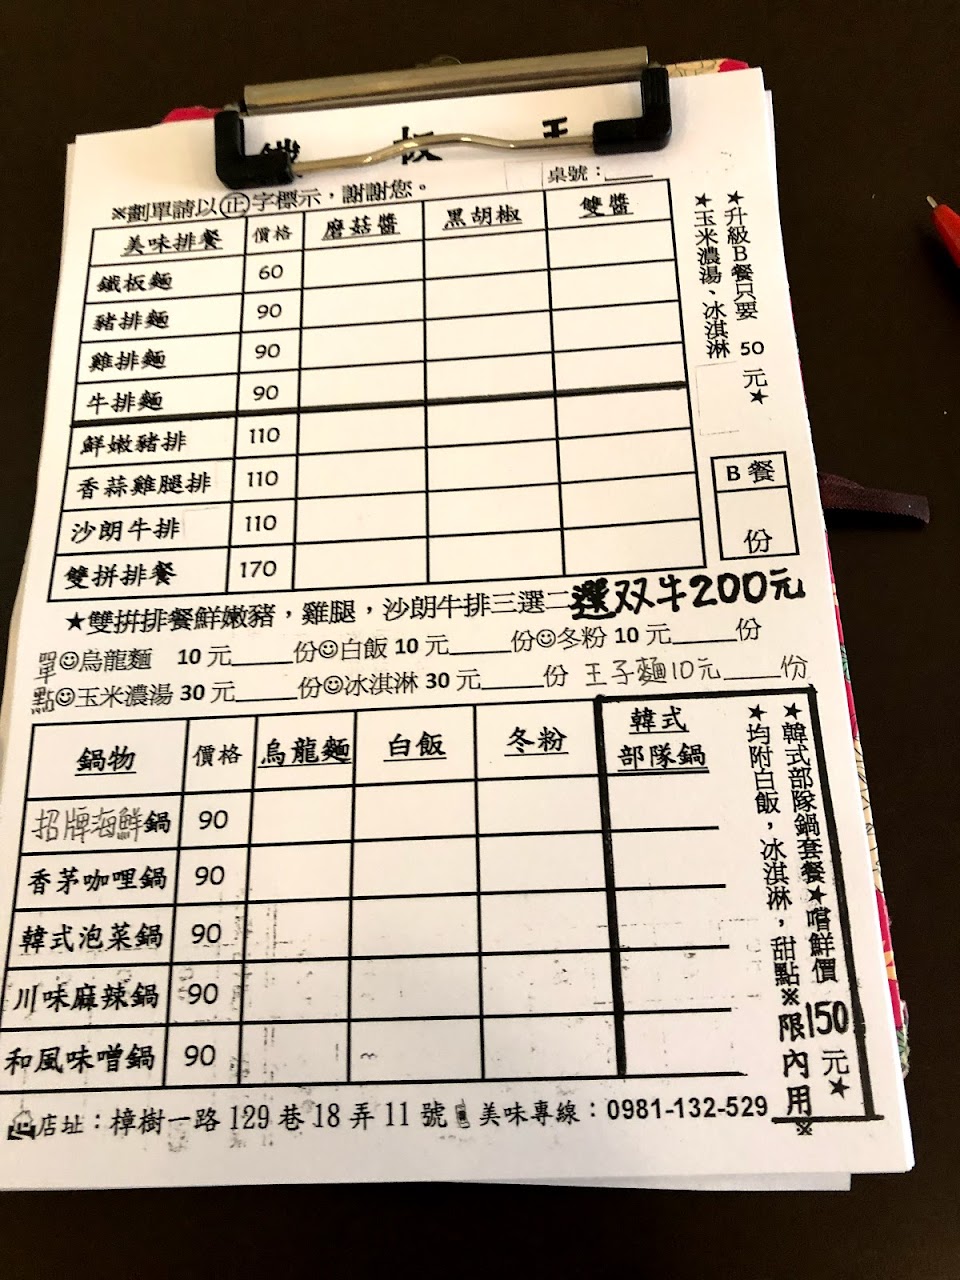 鐵 板 王
桌號：
※劃單請以㊣字標示，謝謝您。
美味排餐 價格 磨菇醬 黑胡椒 雙醬
鐵板麵 60
豬排麵 90
雞排麵 90
牛排麵 90
鮮嫩豬排 110
香蒜雞腿排 110
沙朗牛排 110
雙拼排餐 170
★升級B餐只要 50 元★
★玉米濃湯、冰淇淋
B 餐
份
★雙拚排餐鮮嫩豬，雞腿，沙朗牛排三選二 選双牛200元
單點
☺烏龍麵 10 元____份☺白飯 10 元____份☺冬粉 10 元____份
☺玉米濃湯 30 元____份☺冰淇淋 30 元____份 王子麵10元____份
鍋物 價格 烏龍麵 白飯 冬粉 韓式部隊鍋
招牌海鮮鍋 90
香茅咖哩鍋 90
韓式泡菜鍋 90
川味麻辣鍋 90
和風味噌鍋 90
★韓式部隊鍋套餐★嚐鮮價150元★
★均附白飯，冰淇淋，甜點※限內用※
店址：樟樹一路 129 巷 18 弄 11 號 美味專線：0981-132-529